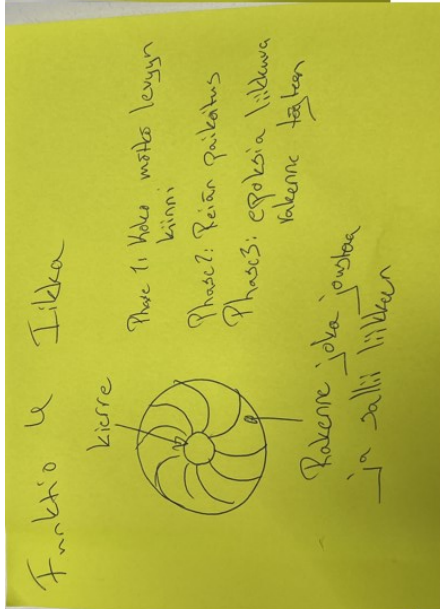 Funktio 4 Iikka
kierre
Phase 1: Koko mötkö levyyn
kiinni
Phase2: Reiän paikoitus
Phase3: epoksia liikkuva
rakenne täyteen
Rakenne joka joustaa
ja sallii liikkeen